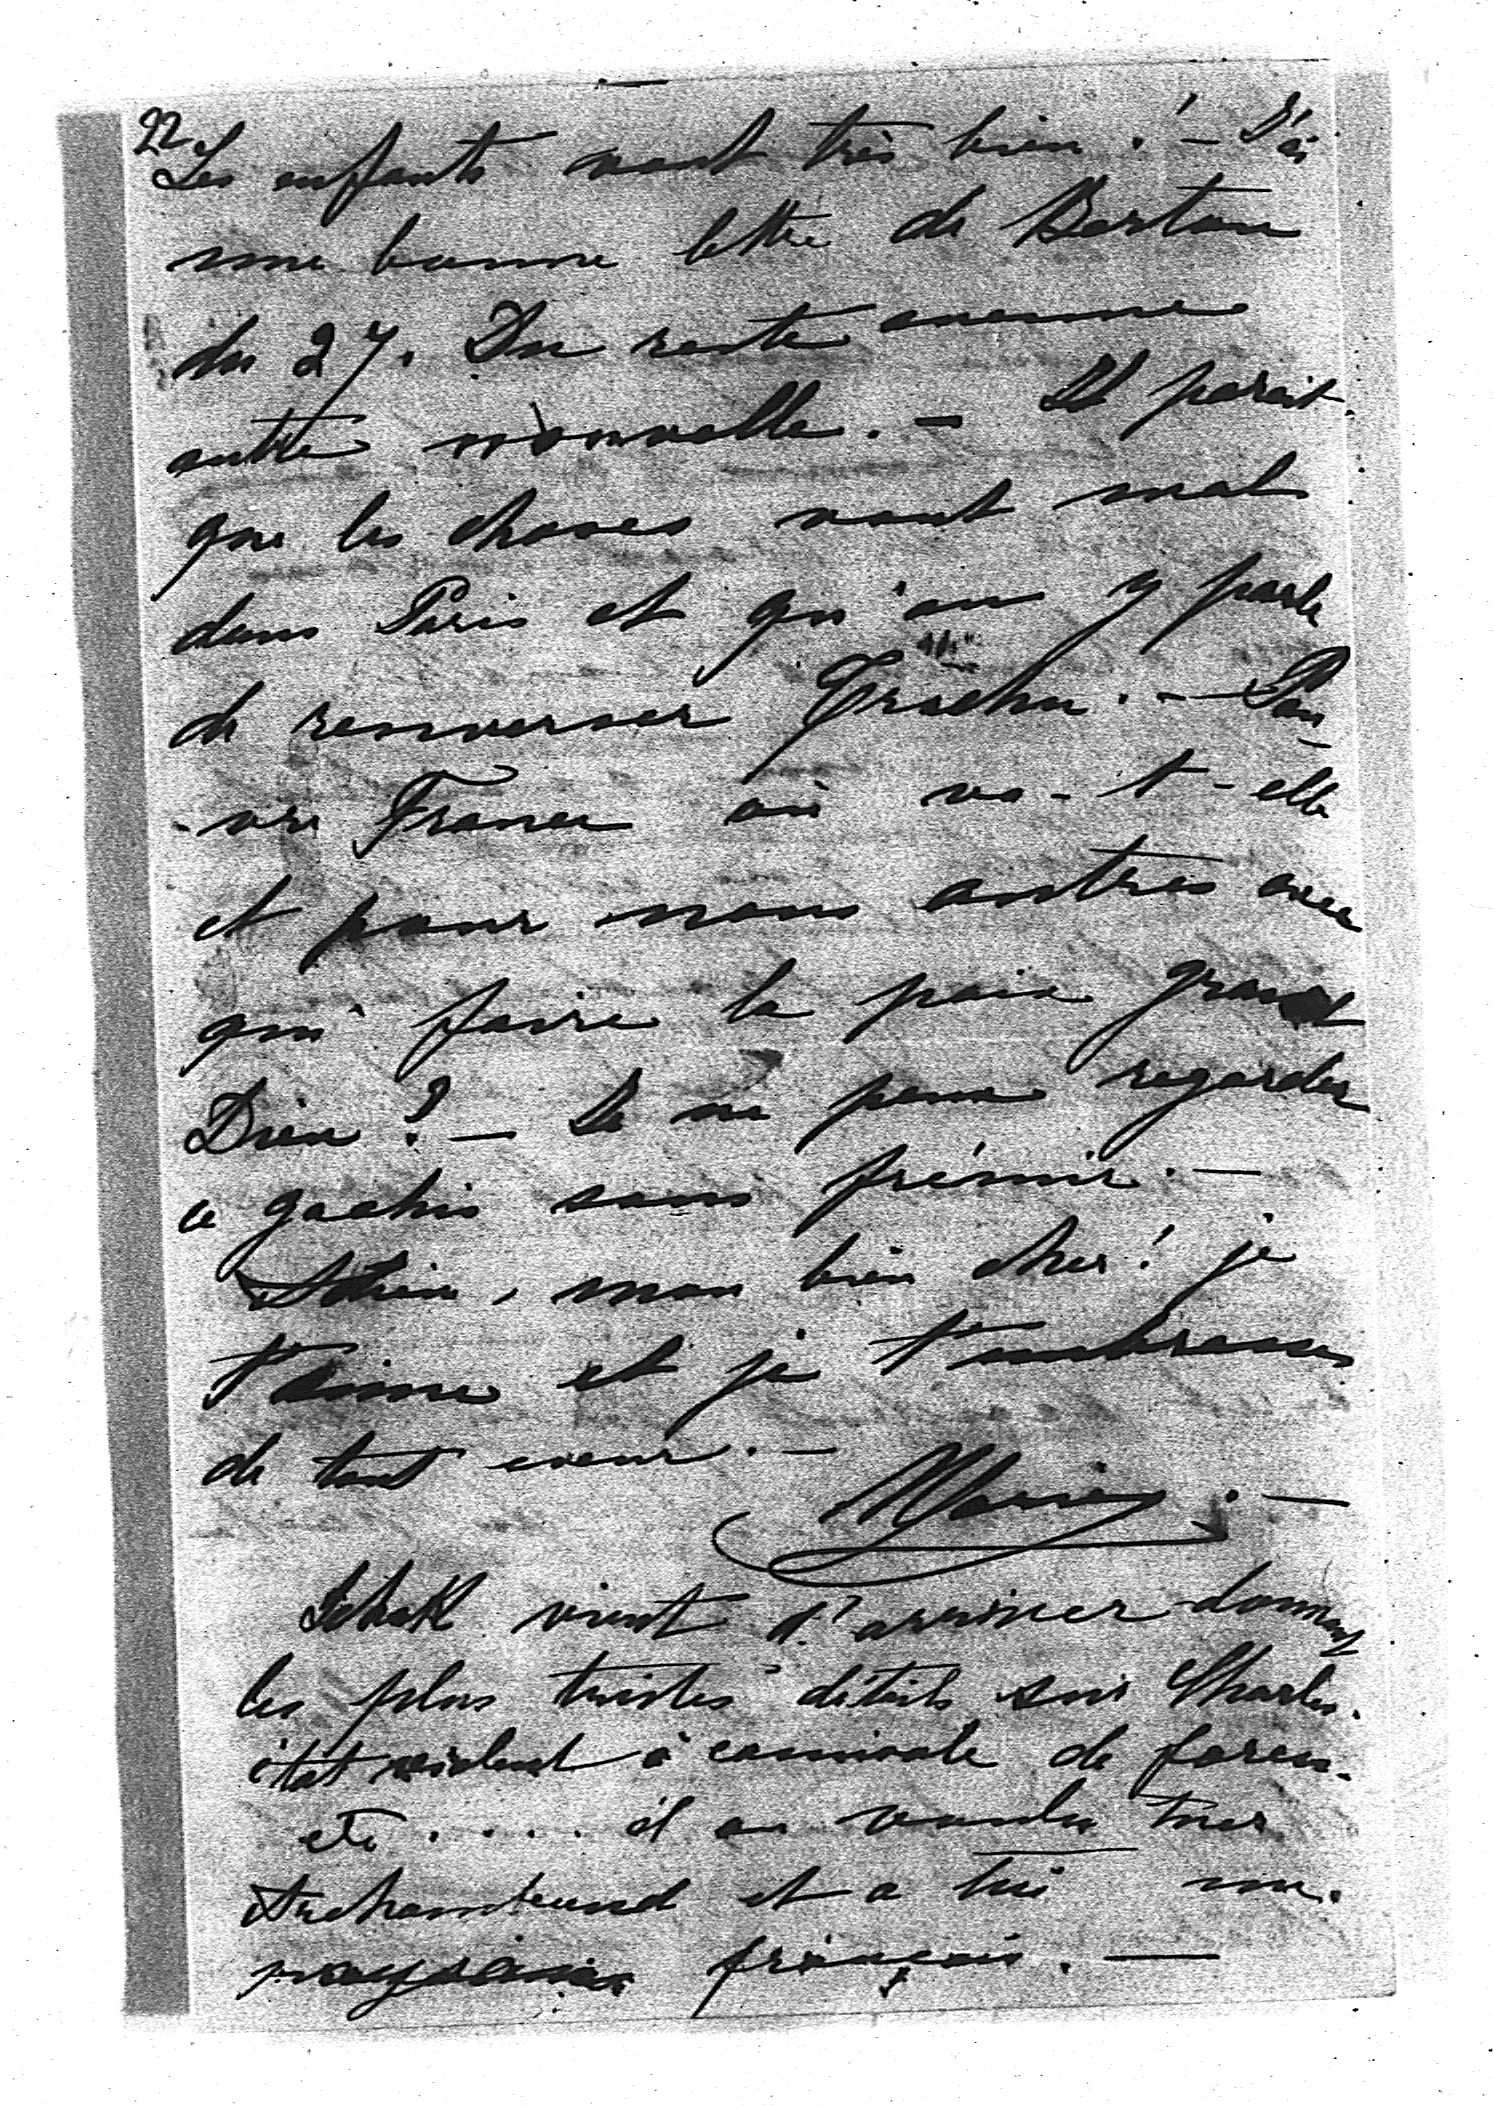 22
Les enfants vont très bien ! — J'ai
une bonne lettre de Berton
du 27. Du reste aucune
autre nouvelle. — Il parait
que les choses vont mal
dans Paris et qu'on y parle
de renverser Trochu. — Pau-
vre France où va-t-elle
et pour nous autres avec
qui faire la paix grand
Dieu ? — Je ne peux regarder
ce gachis sans frémir. —
Adieu, mon bien cher ! je
t'aime et je t'embrasse
de tout coeur. —
Marie. —
vient d'arriver donnant
les plus tristes détails sur Charles.
état violent à camisole de force.
etc .... il a voulu tuer
et a tué un
français. —